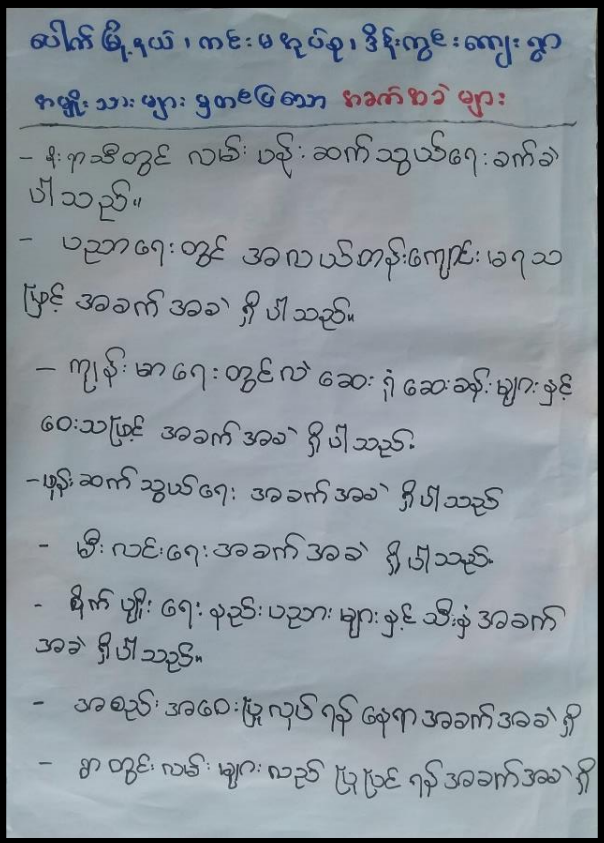 ပေါက်မြို့နယ်၊ ကင်းမအုပ်စု၊ ဒိန်းကွင်းကျေးရွာ
အမျိုးသားများ ရှုတင်ပြသော အခက်အခဲများ
- မိုးရာသီတွင် လမ်းပန်းဆက်သွယ်ရေးခက်ခဲ
ပါသည်။
- ပညာရေးတွင် အလယ်တန်းကျောင်းမရသ
ဖြင့် အခက်အခဲ ရှိပါသည်။
- ကျန်းမာရေးတွင်လဲ ဆေးရုံဆေးခန်းများနှင့်
ဝေးသဖြင့် အခက်အခဲ ရှိပါသည်.
- ဖုန်းဆက်သွယ်ရေး အခက်အခဲ ရှိပါသည်
- မီးလင်းရေးအခက်အခဲ ရှိပါသည်.
- စိုက်ပျိုးရေးနည်းပညာများနှင့် သီးနှံအခက်
အခဲ ရှိပါသည်။
- အစည်းအဝေးပြုလုပ်ရန် နေရာအခက်အခဲရှိ
- ရွာတွင်းလမ်းများလည် ပြုပြင်ရန် အခက်အခဲရှိ